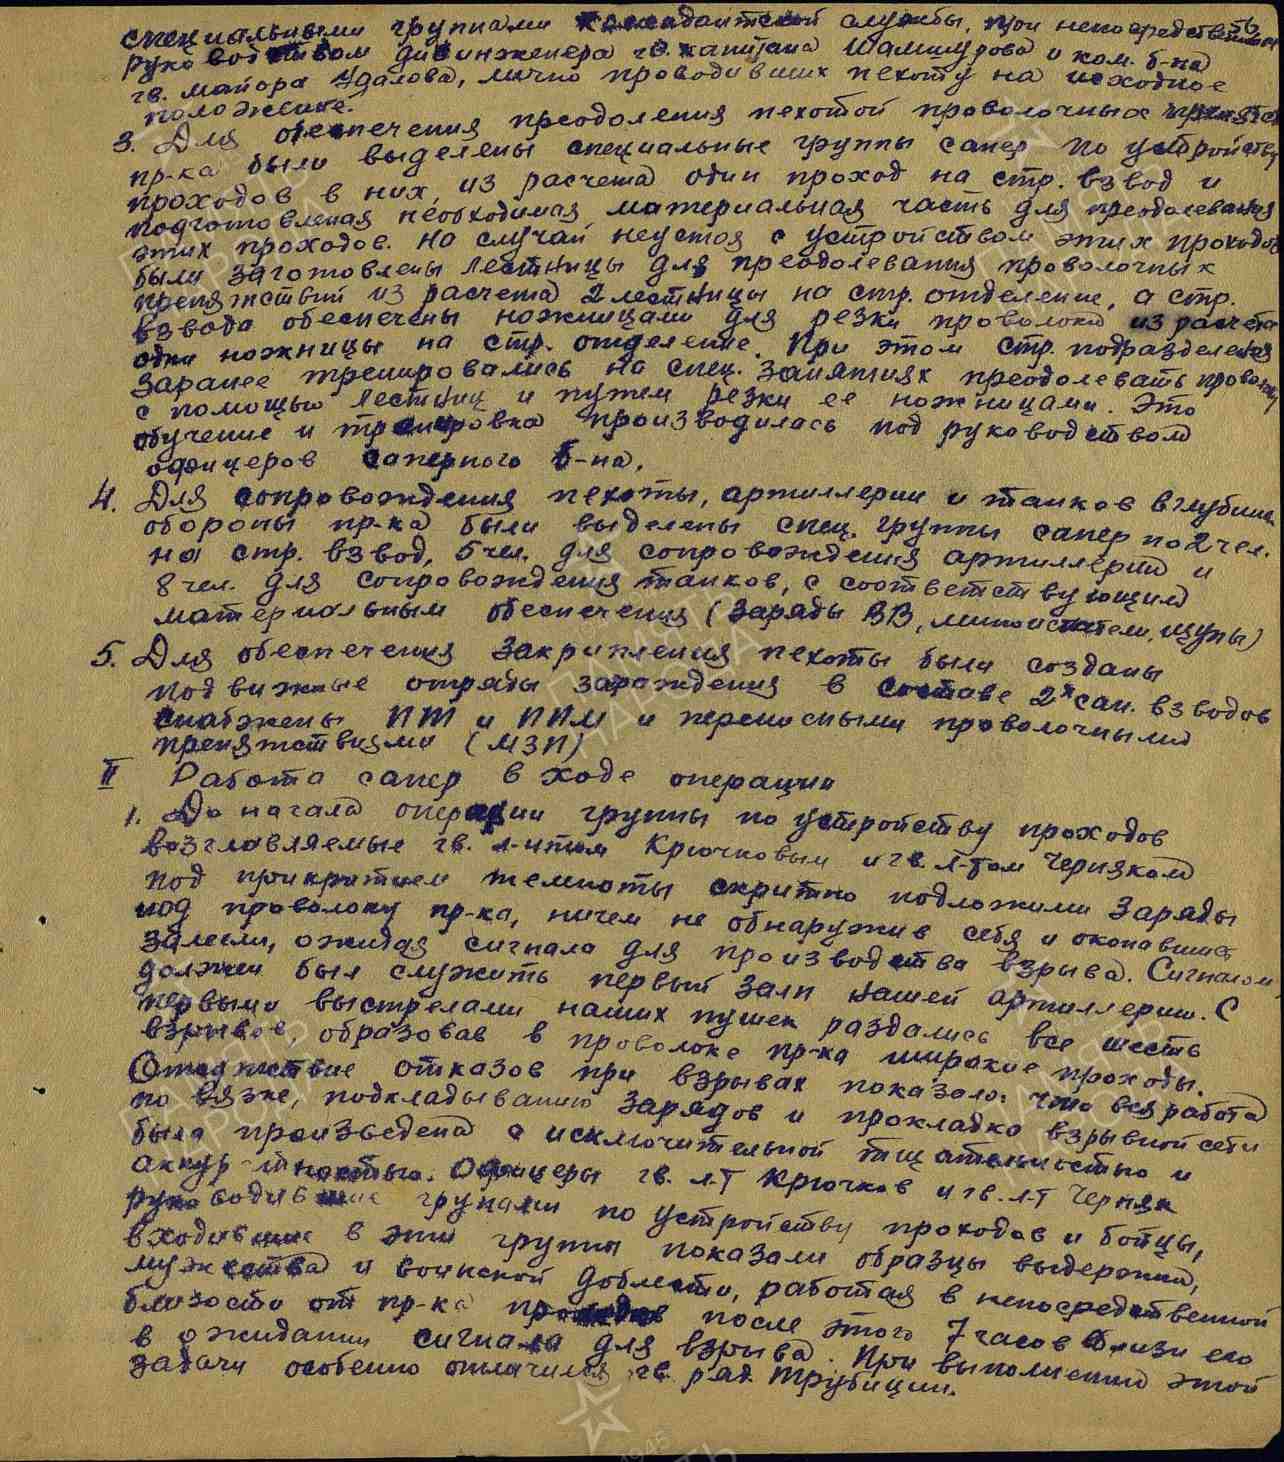 специальными группами комендантской службы, при непосредственном
руководством дивинженера гв. капитана Шамшурова и ком. б-на
гв. майора Удалова, лично проводивших пехоту на исходное
положение.
3. Для обеспечения преодоления пехотой проволочных препятст.
пр-ка были выделены специальные группы сапер по устройству
проходов в них, из расчета один проход на стр. взвод и
подготовленая необходимая материальная часть для преодолевания
этих проходов. На случай неустоя с устройством этих проходов
были заготовлены лестницы для преодолевания проволочных
препяжствий из расчета 2 лестницы на стр. отделение, а стр.
взвода обеспечены ножницами для резки проволоки из расчета
одни ножницы на стр. отделение. При этом стр. подразделения
заранее тренировались на спец. занятиях преодолевать проволоку
с помощью лестниц и путем резки ее ножницами. Это
обучение и тренировка производилась под руководством
офицеров саперного б-на.
4. Для сопровождения пехоты, артиллерии и танков в глубине
обороны пр-ка были выделены спец. группы сапер по 2 чел.
на стр. взвод, 5 чел. для сопровождения артиллерии и
8 чел. для сопровождения танков, с соответствующим
материальным обеспечения (заряды ВВ, миноискатели, щупы)
5. Для обеспечения закрипления пехоты были созданы
подвижные отряды зараждения в составе 2х сап. взводов
снабжены ПТ и ППМ и переносными проволочными
препяжствиями (МЗП)
II Работа сапер в ходе операции
1. До начала операции группы по устройству проходов
возглавляемые гв. л-нтом Крючковым и гв. л-том Черняком
под прикрытием темноты скрытно подложили заряды
под проволоку пр-ка, ничем не обнаружив себя и окопавшись
залегли, ожидая сигнала для производства взрыва. Сигналом
должен был служить первый залп нашей артиллерии. С
первыми выстрелами наших пушек раздались все шесть
взрывов, образовав в проволоке пр-ка широкие проходы.
Отсутствие отказов при взрывах показало, что вся работа
по вязке, подкладыванию зарядов и прокладка взрывной сети
была произведена с исключительной тщательностью и
аккуратностью. Офицеры гв. л-т Крючков и гв. л-т Черняк
руководившие групами по устройству проходов и бойцы,
входившие в эти группы показали образцы выдержки,
мужества и воинской доблести, работая в непосредственной
близости от пр-ка после этого 7 часов вблизи его
в ожидании сигнала для взрыва. При выполнении этой
задачи особенно отличился гв. ряд. Трубицин.